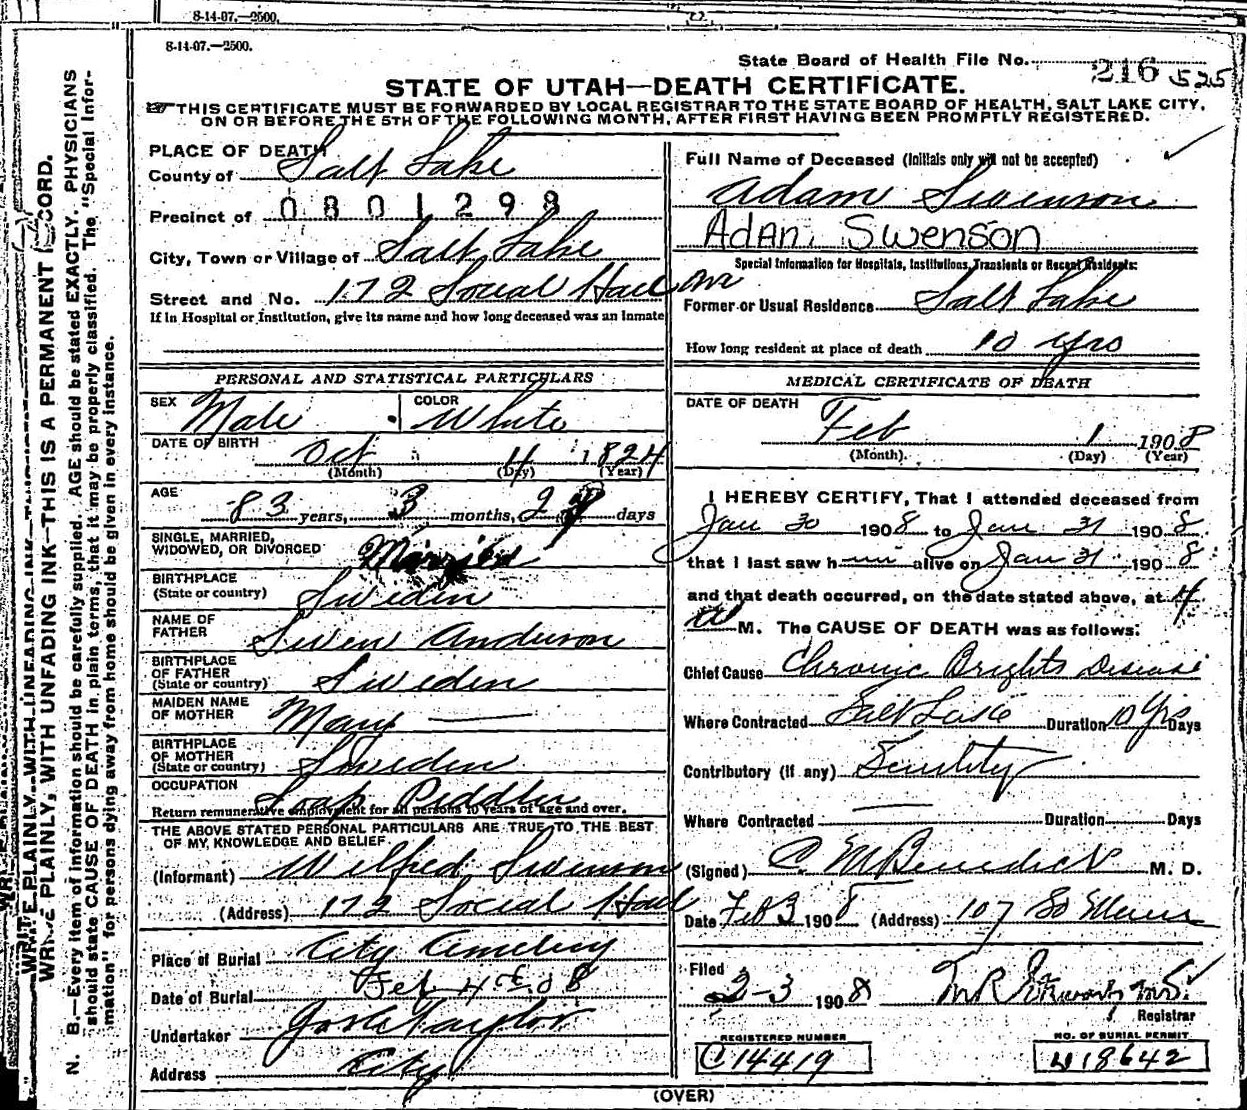 8-14-07.—2500.
8-14-07.—2500.
State Board of Health File No. 216 525
STATE OF UTAH—DEATH CERTIFICATE.
THIS CERTIFICATE MUST BE FORWARDED BY LOCAL REGISTRAR TO THE STATE BOARD OF HEALTH, SALT LAKE CITY,
ON OR BEFORE THE 5TH OF THE FOLLOWING MONTH, AFTER FIRST HAVING BEEN PROMPTLY REGISTERED.
PLACE OF DEATH
County of Salt Lake
Precinct of 0801298
City, Town or Village of Salt Lake
Street and No. 172 Social Hall Ave
If in Hospital or Institution, give its name and how long deceased was an inmate
PERSONAL AND STATISTICAL PARTICULARS
SEX Male COLOR White
DATE OF BIRTH Oct 4 1824
(Month) (Day) (Year)
AGE
83 years, 3 months, 2 days
SINGLE, MARRIED,
WIDOWED, OR DIVORCED Married
BIRTHPLACE
(State or country) Sweden
NAME OF
FATHER Swen Anderson
BIRTHPLACE
OF FATHER
(State or country) Sweden
MAIDEN NAME
OF MOTHER Mary —
BIRTHPLACE
OF MOTHER
(State or country) Sweden
OCCUPATION Soap Peddler
Return remunerative employment for all persons 10 years of age and over.
THE ABOVE STATED PERSONAL PARTICULARS ARE TRUE TO THE BEST
OF MY KNOWLEDGE AND BELIEF
(Informant) Wilfred Swenson
(Address) 172 Social Hall
Place of Burial City Cemetery
Date of Burial Feb 4th 08
Undertaker Taylor
Address City
Full Name of Deceased (Initials only will not be accepted)
Adam Swenson
Adam Swenson
Special Information for Hospitals, Institutions, Transients or Recent Residents:
Former or Usual Residence Salt Lake
How long resident at place of death 10 yrs
MEDICAL CERTIFICATE OF DEATH
DATE OF DEATH
Feb 1 1908
(Month). (Day) (Year)
I HEREBY CERTIFY, That I attended deceased from
Jan 30 1908 to Jan 31 1908
that I last saw him alive on Jan 31 1908
and that death occurred, on the date stated above, at 4
A M. The CAUSE OF DEATH was as follows:
Chief Cause Chronic Brights Disease
Where Contracted Salt Lake Duration 10 Yrs Days
Contributory (if any) Senility
Where Contracted — Duration Days
(Signed) C M Benedict M. D.
Date Feb 3 1908 (Address) 107 So Main
Filed
2-3 1908
Registrar
REGISTERED NUMBER
C14419
NO. OF BURIAL PERMIT
18642
(OVER)
WRITE PLAINLY, WITH UNFADING INK—THIS IS A PERMANENT RECORD.
N. B.—Every item of information should be carefully supplied. AGE should be stated EXACTLY. PHYSICIANS
should state CAUSE OF DEATH in plain terms, that it may be properly classified. The "Special Infor-
mation" for persons dying away from home should be given in every instance.